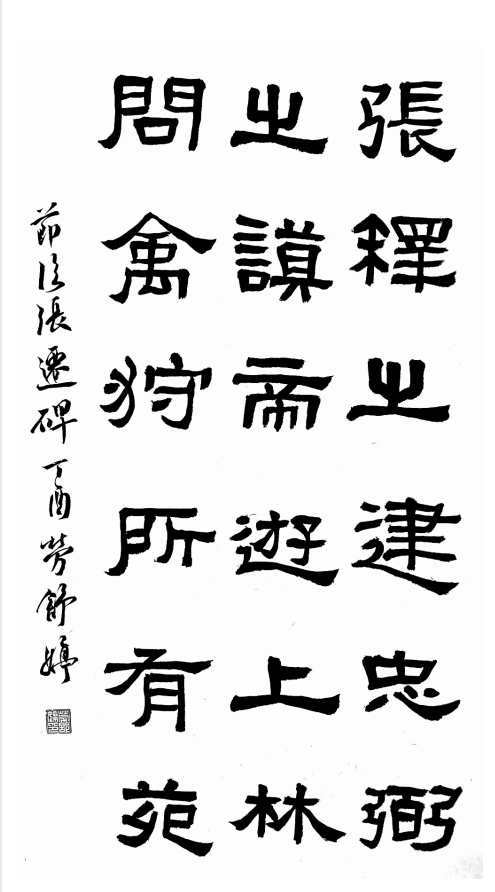 張釋之建忠弼
之謨帝遊上林
問禽狩所有苑
節臨張遷碑丁酉勞舒婷